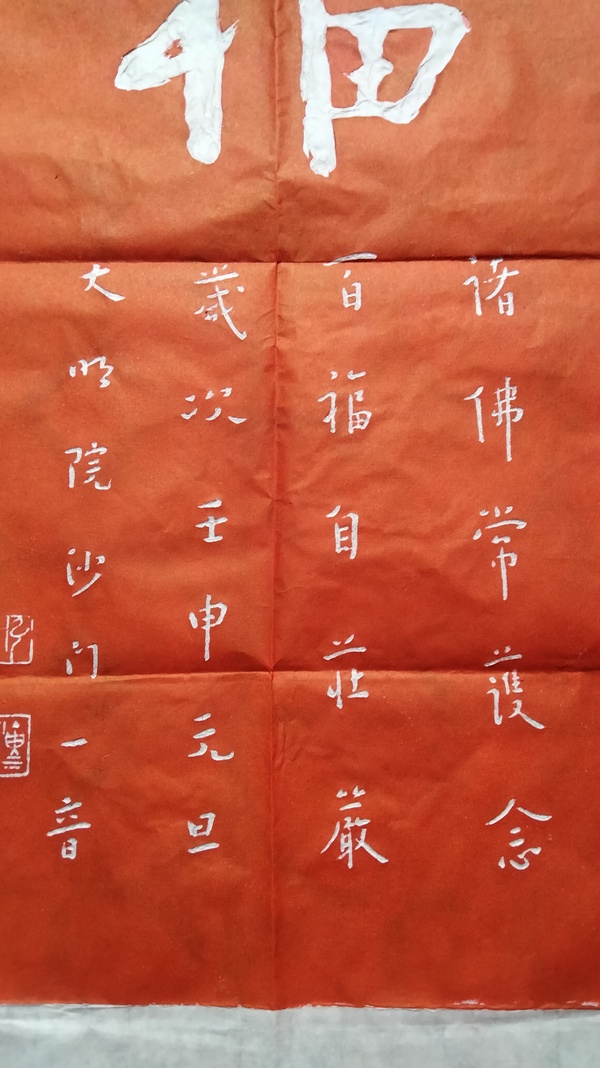 諸佛常護念
百福自莊嚴
歲次壬申元旦
大明院沙门一音